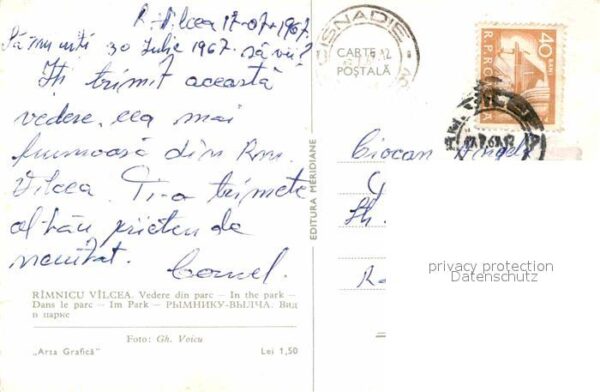 R. Vîlcea 17-07-1967.
Să nu uiți 30 Iulie 1967. să vii?
Îți trimit această
vedere, cea mai
frumoasă din Rm.
Vîlcea. Ți-o trimete
al tău prieten de
neuitat. Cornel.
RÎMNICU VÎLCEA. Vedere din parc — In the park —
Dans le parc — Im Park — РЫМНИКУ-ВЫЛЧА. Вид
в парке
Foto: Gh. Voicu
„Arta Grafică” Lei 1,50
EDITURA MERIDIANE
CISNADIE
CARTE
POȘTALĂ
40 BANI
R.P.ROMÎNA
VÎLCEA
Ciocan
privacy protection
Datenschutz